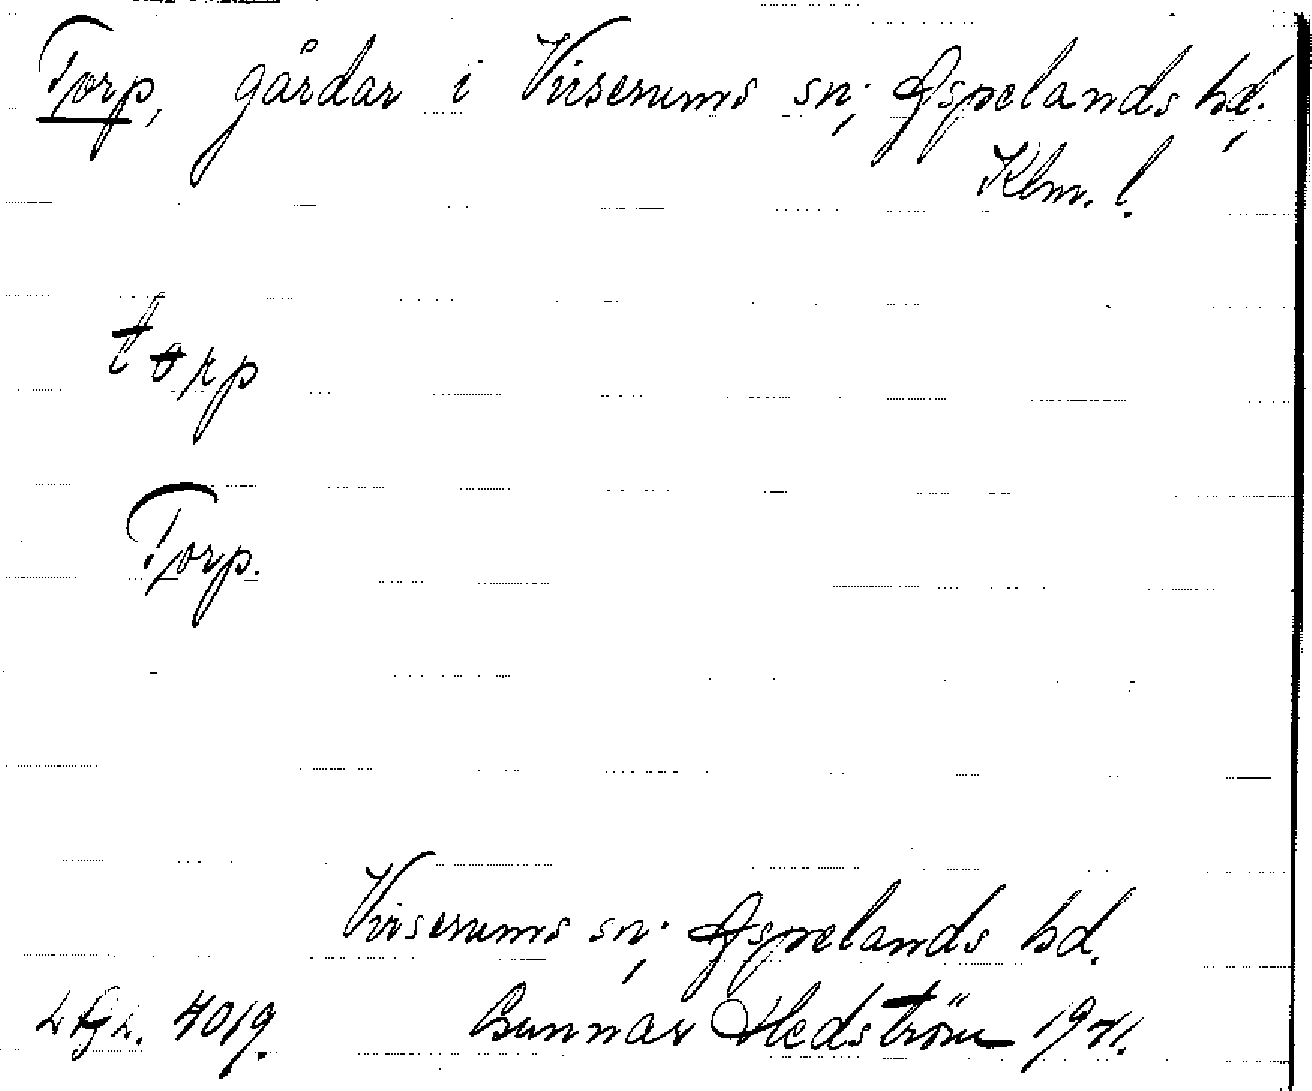 Torp, gårdar i Virserums sn; Aspelands hd.,
Klm. l.
torp
Torp.
Virserums sn; Aspelands hd.
4019. Gunnar Hedström 1941.